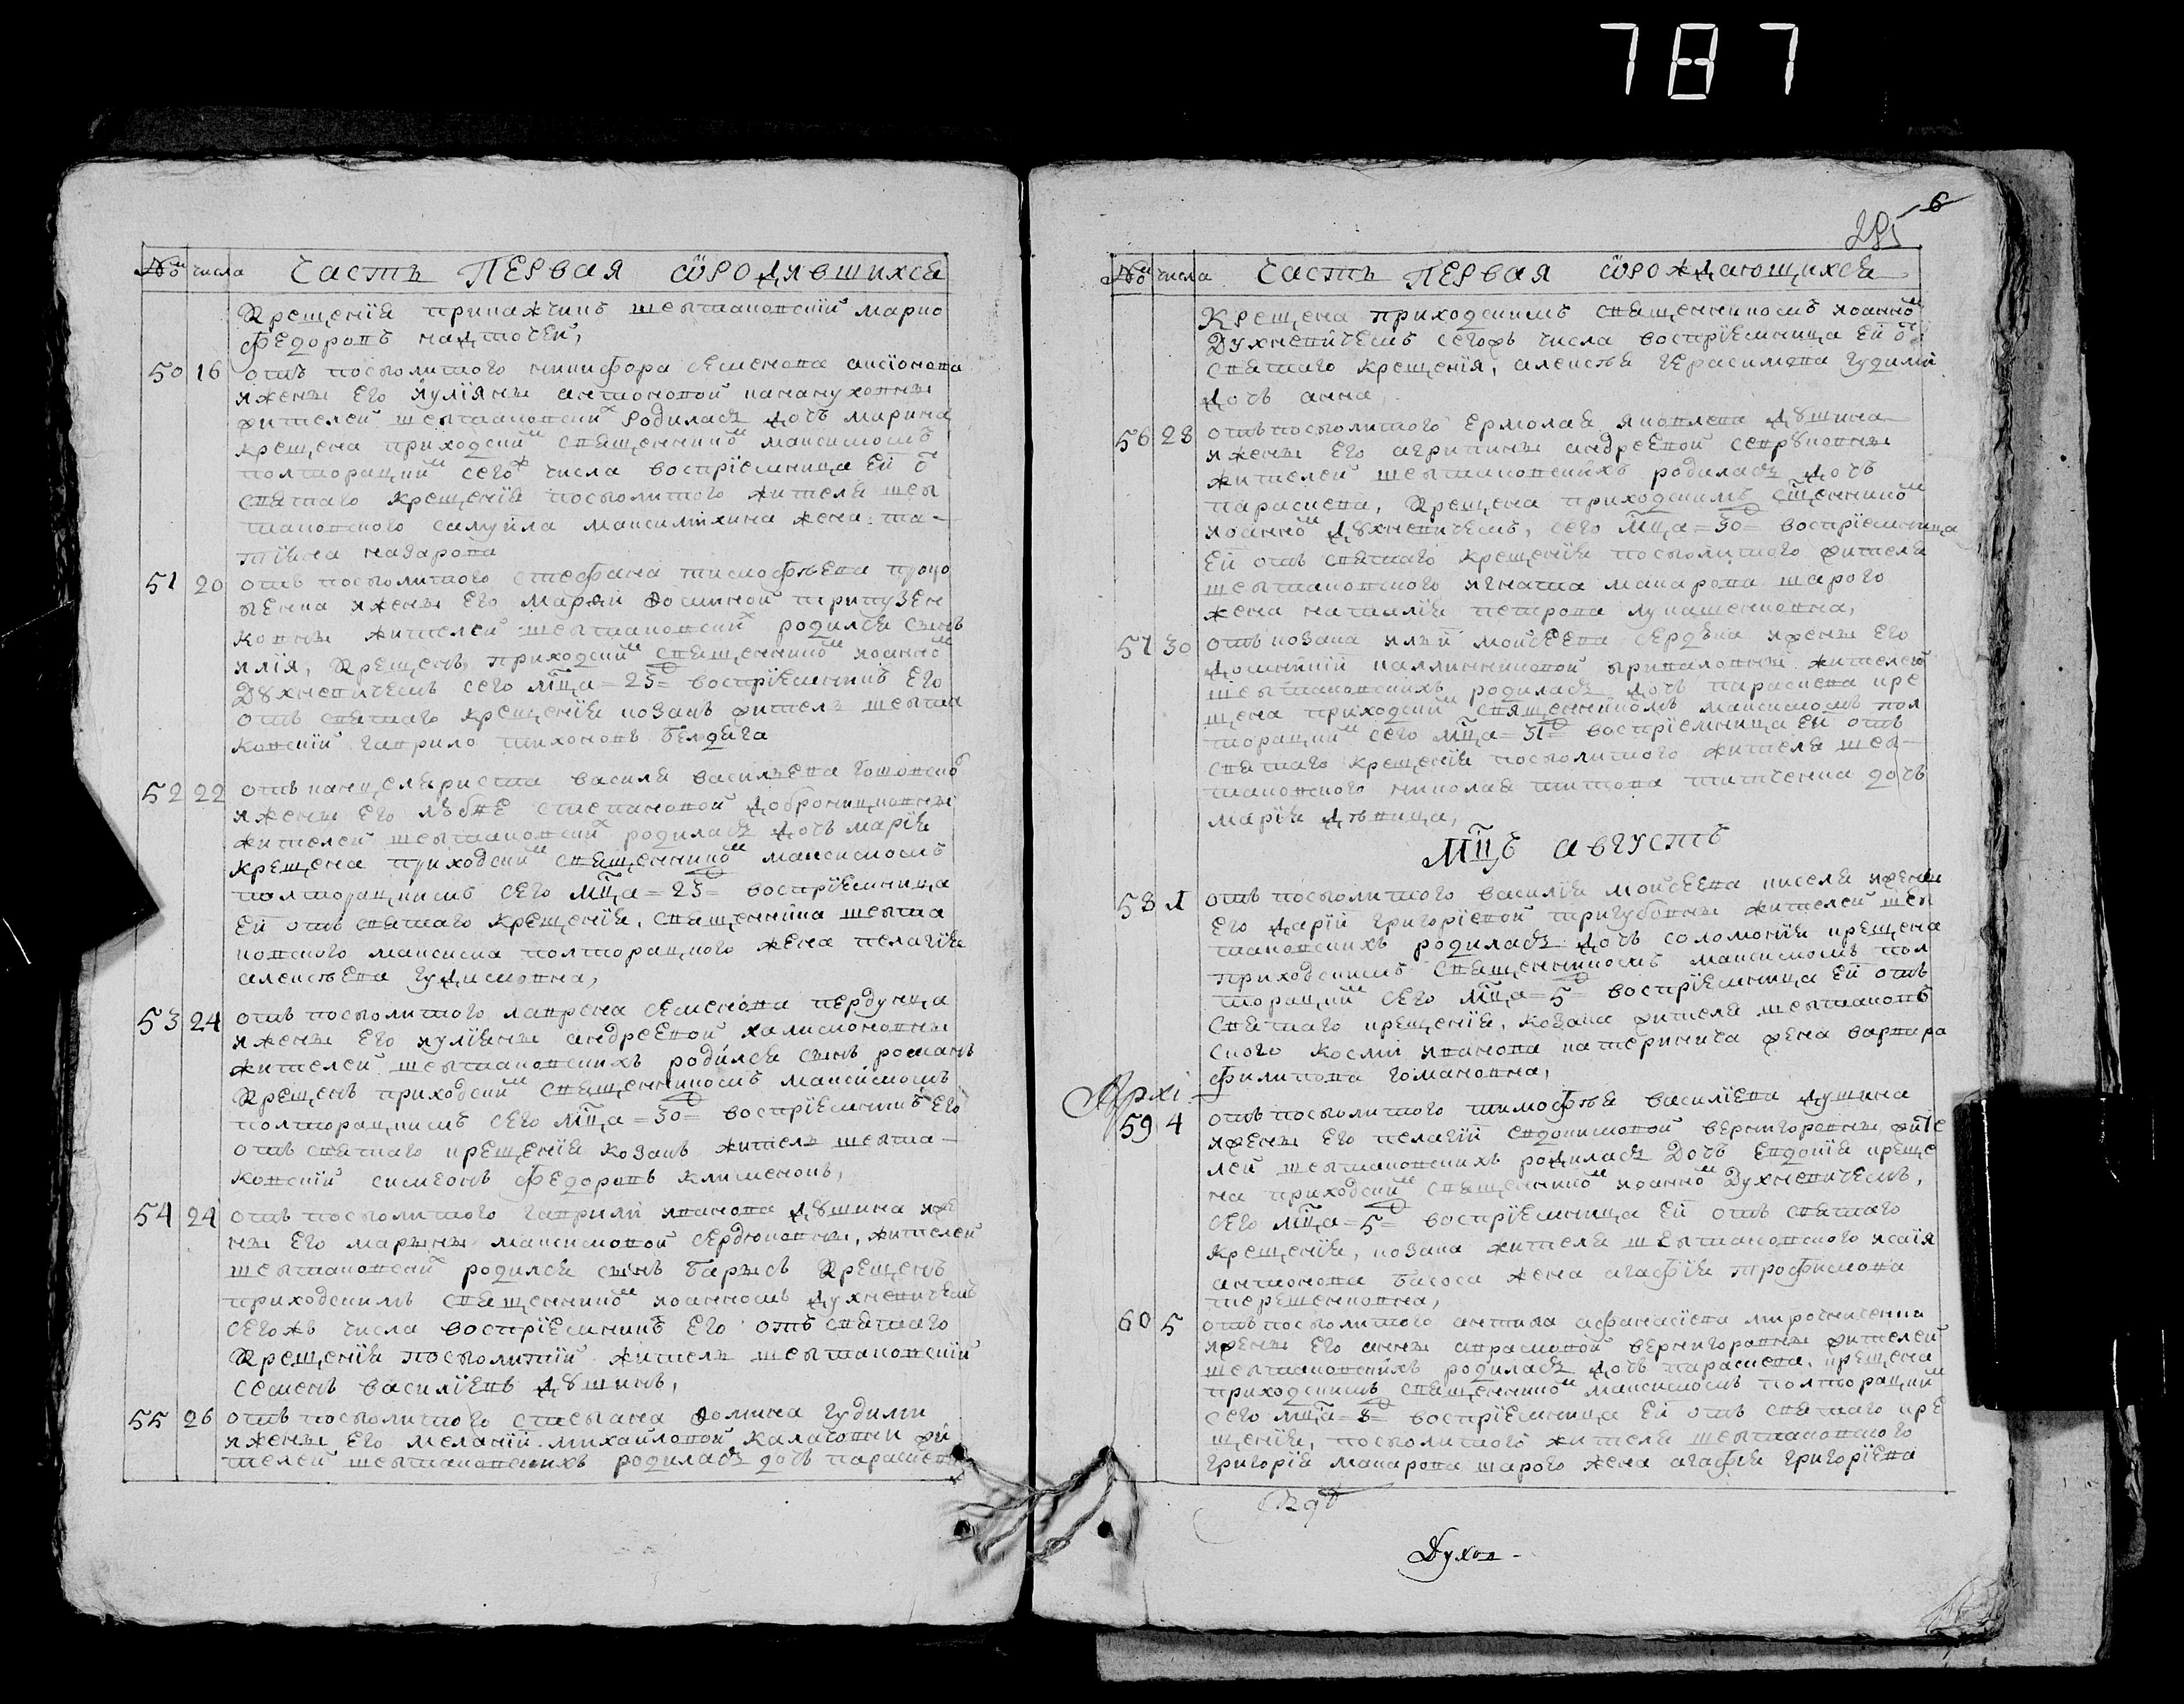 787
285 6
№ числа Часть Первая ѡ родившихся
Крещения прикажчикъ шептаковскій марко
Федоровъ надточей,
50 16 отъ посполитого никифора семенова аксіонова
ижены его иуліяны антоновой канануховны
жителей шептаковских родилась дочь марина
крещена приходским священником максимомъ
полторацким сегож числа воспріемница ей ѿ
святаго крещения посполитого жителя шеп
таковского самуйла максимихина жена та-
тіяна назарова
51 20 отъ посполитого стефана тимофѣева
ижены его марѳи ѳоминой трипузен
ковны жителей шептаковских родился сынъ
илія, крещенъ приходским священником иоанном
Духневичемъ сего мца = 25 = воспріемникъ его
отъ святаго крещения козакъ житель шепта
ковскій гаврило тихоновъ
52 22 отъ канцеляриста василя василъева
ижены его любве степановой
жителей шептаковских родилась дочь марія
крещена приходским священником максимомъ
полторацкимъ сего мца = 25 = воспріемница
ей отъ святаго крещения, священника шепта
ковского максима полторацкого жена пелагія
алексѣева гудимовна,
53 24 отъ посполитого лаврена семенова пердунца
ижены его иуліяны андреевой халимоновны
жителей шептаковскихъ родился сынъ романъ
крещенъ приходским священникомъ максимомъ
полторацкимъ сего мца = 30 = воспріемникъ его
отъ святаго крещения козакъ житель шепта-
ковскій симеонъ федоровъ клименокъ,
54 24 отъ посполитого гаврили иванова душина иже
ны его марины максимовой сердюковны, жителей
шептаковских родился сынъ барысъ крещенъ
приходскимъ священником иоанномъ духневичемъ
сегожъ числа воспріемникъ его отъ святаго
крещения посполитій житель шептаковскій
семенъ василіевъ душинъ,
55 26 отъ посполитого степана ѳомина гудими
ижены его меланіи михайловой калаговни жи
телей шептаковскихъ родилась дочь параскева
№ числа Часть Первая ѡ рождающихся
Крещена приходскимъ священникомъ иоанном
Духневичемъ сегожъ числа воспріемница ей ѿ
святаго крещенія, алексѣя герасимова гудими
дочь анна,
56 28 отъ посполитого ермолая яковлева душина
ижены его агрипины андреевой сверуковны
жителей шептаковскихъ родилась дочь
параскева, крещена приходскимъ сщенником
иоанном духневичемъ, сего мца = 30 = воспріемница
ей отъ святаго крещения посполитого жителя
шептаковского игната макарова шарого
жена наталія петрова лукашенковна,
57 30 отъ козака иліи мойсеева сердѣка ижены его
домникіи каллинниковой жителей
шептаковскихъ родилась дочь параскева кре
щена приходским священникомъ максимомъ пол
торацким сего мца = 31 = воспріемница ей отъ
святаго крещения посполитого жителя шеп-
таковского николая титова титченка дочь
марія дѣвица,
Мцъ августъ
58 1 отъ посполитого василія мойсеева киселя ижены
его даріи григоріевой тригубовны жителей шеп
таковскихъ родилась дочь соломонія крещена
приходскимъ священникомъ максимомъ пол
торацким сего мца = 5 = воспріемница ей отъ
святаго крещения, козака жителя шептаковъ
ского косми иванова катеринича жена варвара
филипова романовна,
Архі
59 4 отъ посполитого тимофѣя василіева душина
ижены его пелагіи евдокимовой вернигоровны жите
лей шептаковскихъ родилась дочь евдокія креще
на приходским священником иоанном духневичемъ,
сего мца = 5 = воспріемница ей отъ святаго
крещения, козака жителя шептаковского исаія
антонова басоса жена агафія трофимова
терещенковна,
60 5 отъ посполитого антипа афанасіева мирочниченка
ижены его анны вернигоровны жителей
шептаковскихъ родилась дочь параскева, крещена
приходскимъ священником максимомъ полторацким
сего мца = 8 = воспріемница ей отъ святаго кре
щения, посполитого жителя шептаковского
григорія макарова шарого жена агафія григоріева
Духов-